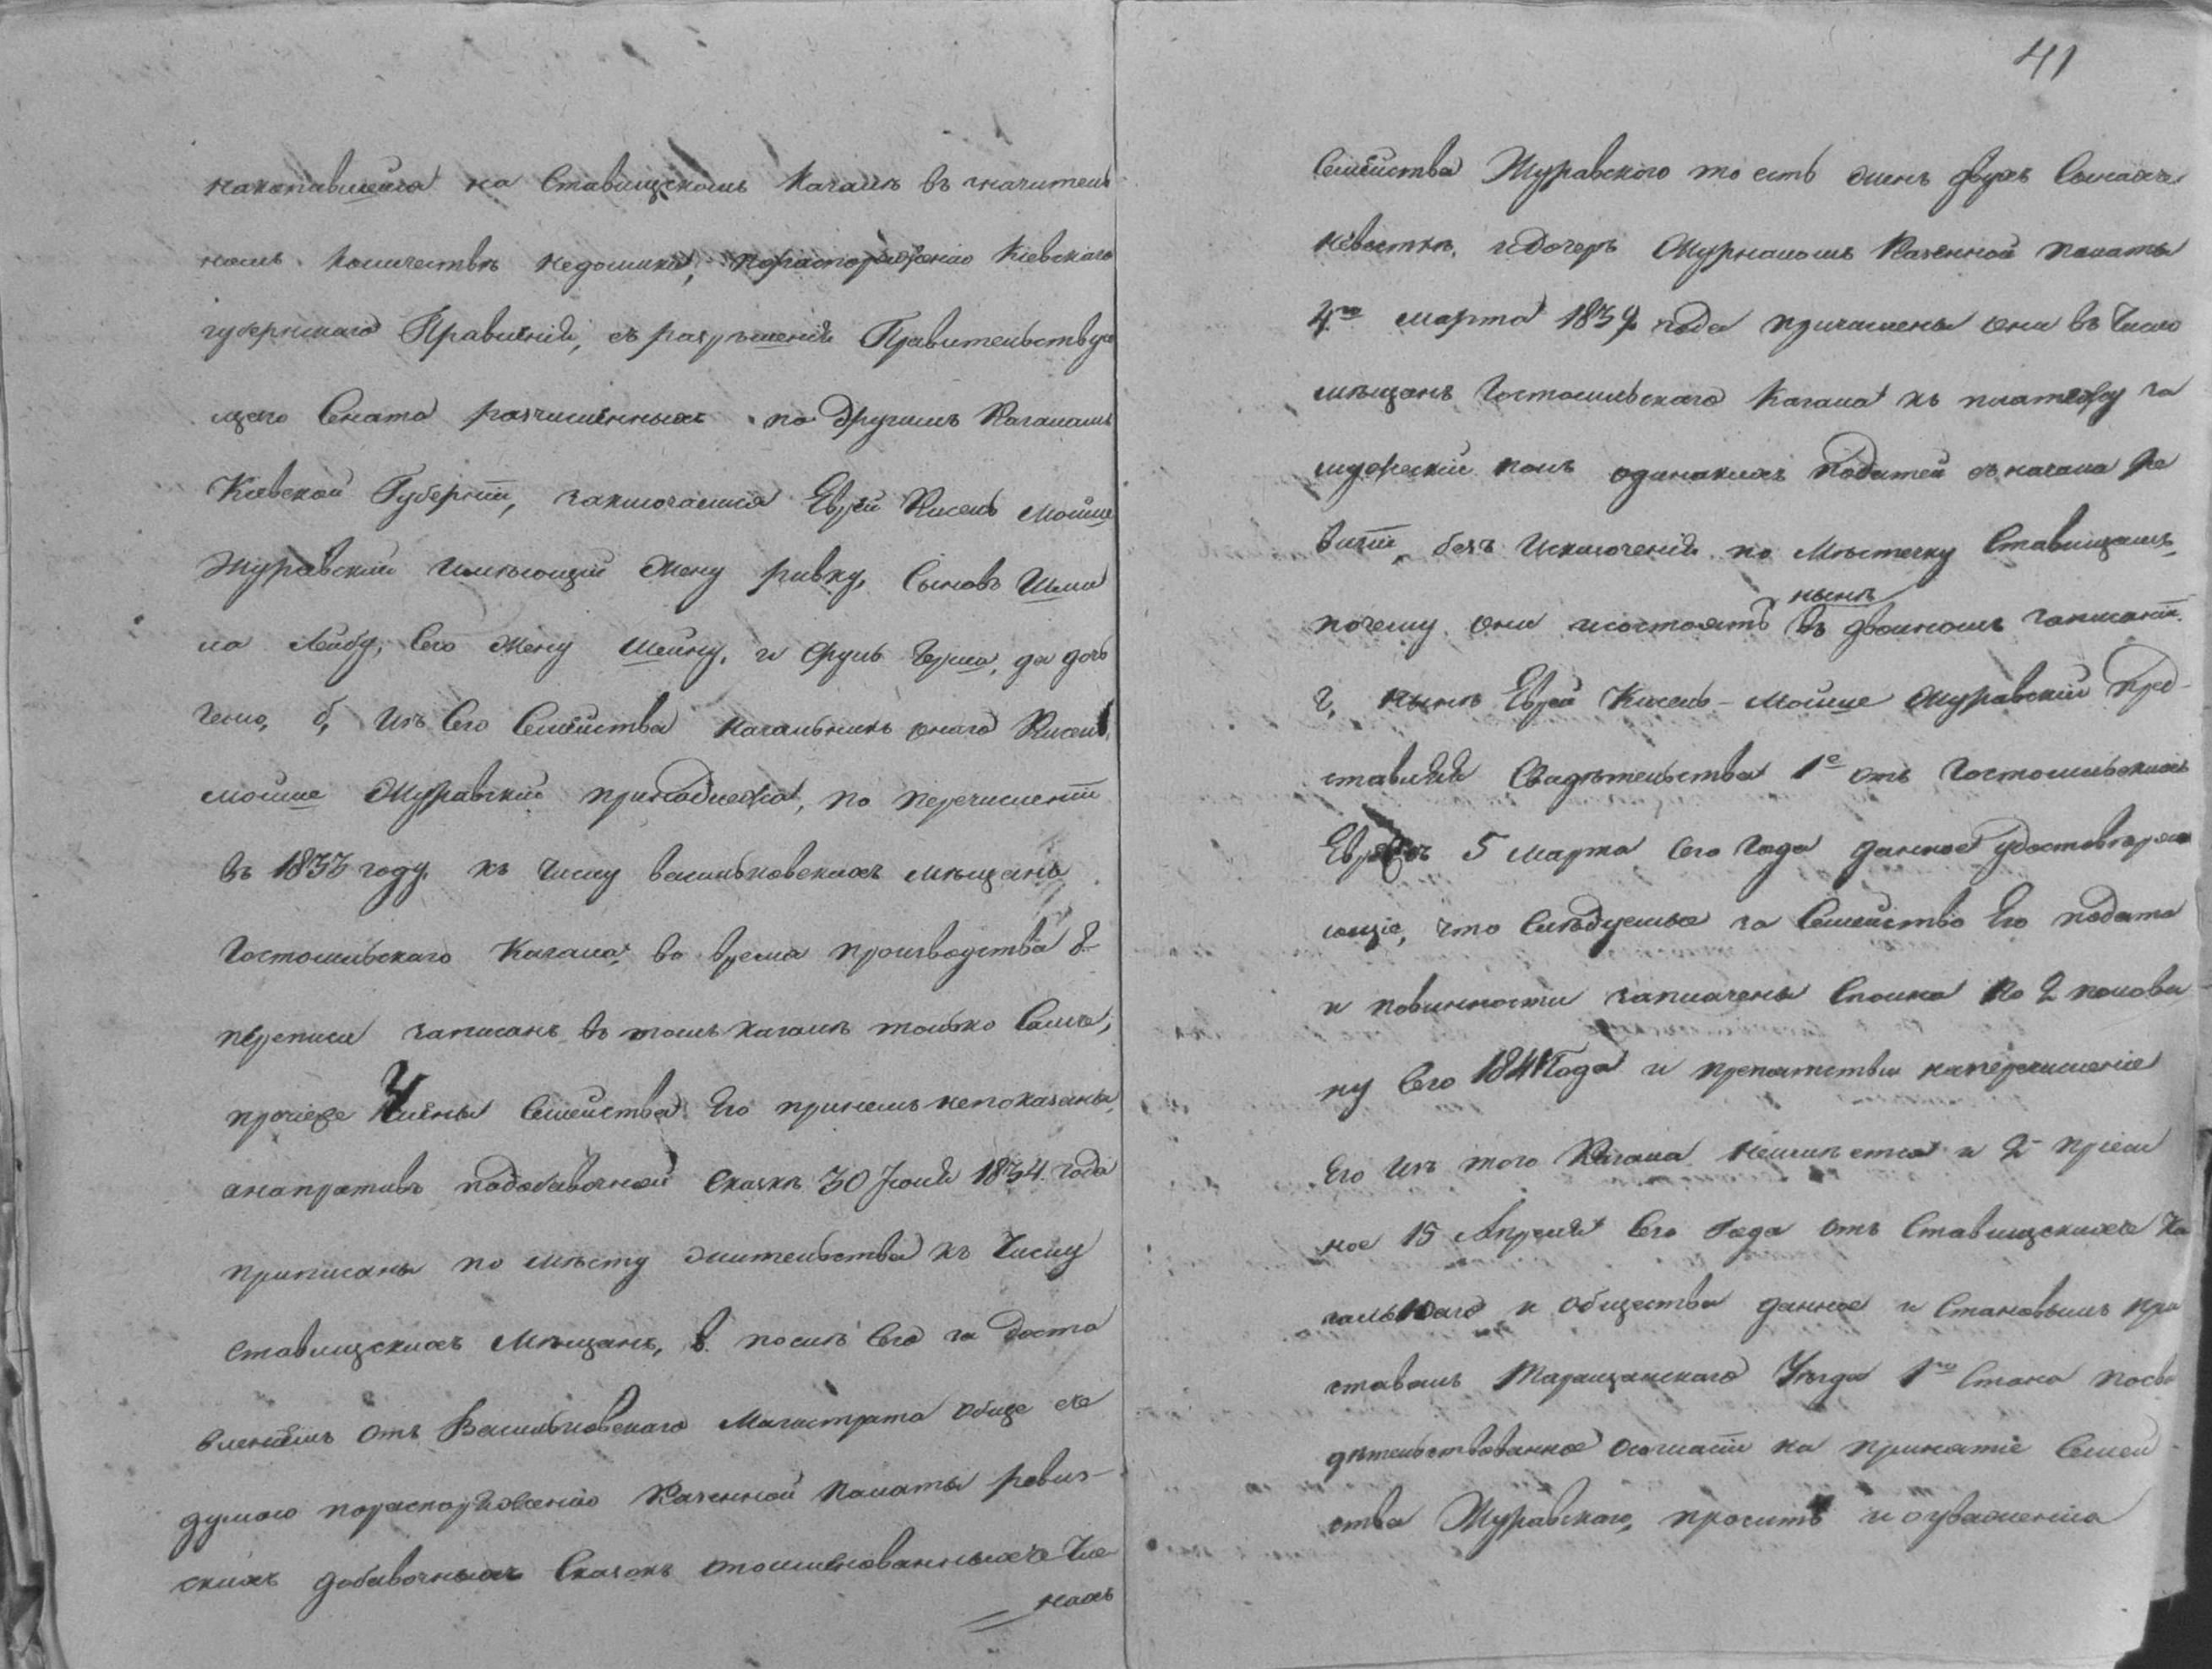 накопившейся на Ставищскомъ Кагалѣ въ значитель
номъ количествѣ недоимки, пораспоряженію Кіевскаго
губернскаго Правленія, съ разрѣшенія Правительствую
щаго Сената разчисленныхъ по другимъ Кагаламъ
Кіевской Губерніи, заключался Еврей Кисель Мойше
Журавскій имѣющій Жену ривку, Сыновъ Шми
ла Лейбу, Его Жену Шейну, и Сруль Герша, да дочь
Ченю, б, Изъ Его Семейства началникъ онаго Кисель
мойше Журавскій принадлежа, по перечисленіи
въ 1833 году, къ числу васильковскихъ мѣщанъ
Гостомльскаго Кагала, во время производства 8й
переписи записанъ въ томъ кагалѣ только Самъ,
прочіеже Члены Семейства Его принемъ непоказаны,
анапротивъ подобавочной сказкѣ 30 Іюня 1834 года
приписаны по мѣсту жительства къ Числу
ставищскихъ Мѣщанъ, в. послѣ Сего за доста
вленіемъ отъ Васильковскаго Магистрата обще съ
думою пораспоряженію Казенной Палаты ревиз-
скихъ добавочныхъ Сказокъ опоименованныхъ Чле
нахъ
41
Семейства Журавского то есть женѣ двухъ Сынахъ
невѣсткѣ, идочерѣ Журналомъ Казенной палаты
4го марта 1839 года причислены они въ Число
мѣщанъ Гостомльскаго Кагала къ платежу за
мужескій полъ одинакихъ податей съ начала ре
визіи, безъ Исключенія по Мѣстечку Ставищамъ,
нынѣ
почему они исостоятъ въ двойномъ записаніи.
г, нынѣ Еврей Кисель-Мойше Журавскій пред-
ставляя Свидѣтельства 1е отъ Гостомльскихъ
Евреевъ 5 марта сего года данное удостовѣря
ющіе, что слѣдуемые за Семейство Его подати
и повинности заплачены Сполна по 2 полови
ну Сего 1841 Года и препятствія наперечисленіе
Его Изъ того Кагала неимѣется и 2е пріем
ное 15 Апреля Сего Года отъ Ставищскихъ Ка
гальнаго и Общества данное и Становымъ при
ставомъ Таращанскаго Уѣзда 1го Стана посви
дѣтельствованное осогласіи на принятіе Семей
ства Журавскаго, проситъ и оуваженіи